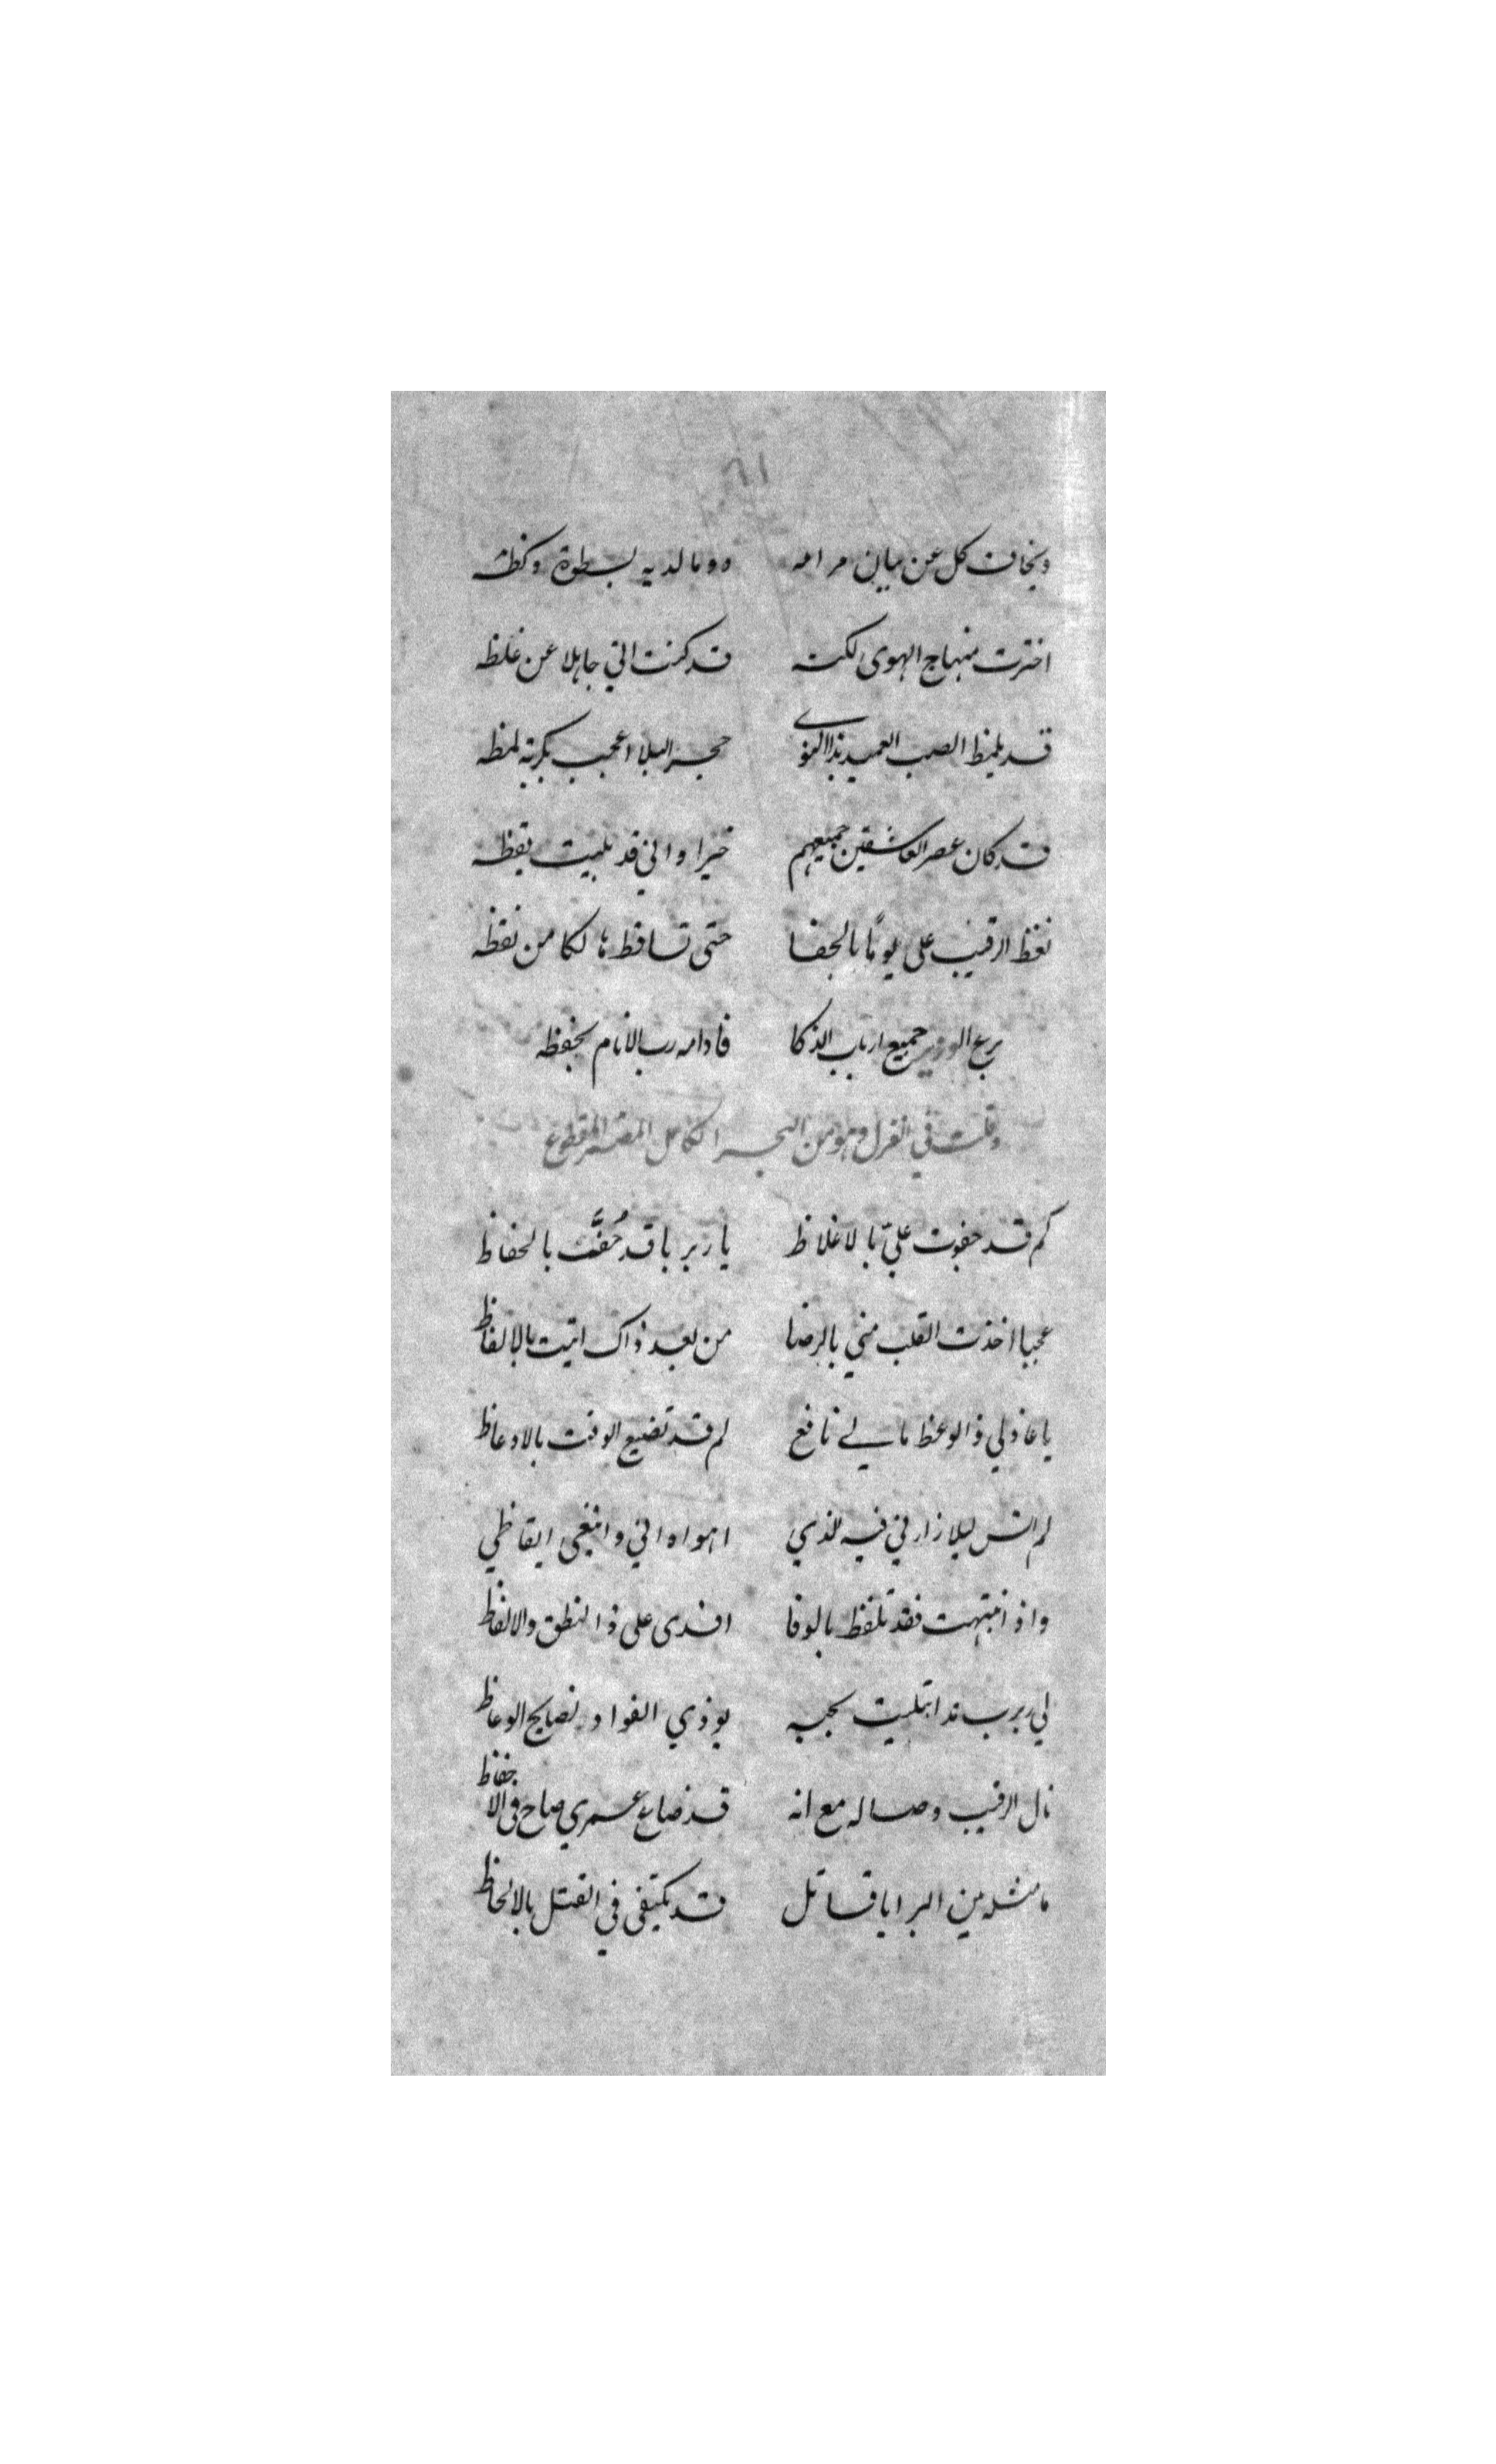 ويخاف كل عن بيان مرامه ... وما لديه بسطوة وكظه
اخترت منهاج الهوى لكنه قد كنت اني جاهلا عن غلظه
قد يلمظ الصب العميد بذا الهوى حجر البلا اعجب بكربة لمظه
قد كان عصر العاشقين جميعهم خيرا واني قد بليت بقظه
نغظ الرقيب على يوما بالجفا حتى تساقط هالكا من نغظه
بربع الوزير جميع ارباب الذكا فأدامه رب الأنام بحفظه
وقلت في الغزل وهو من البحر الكامل المقطوع
كم قد جفوت عليّ بالاغلاظ يا ربربا قد حُفَّت بالحفاظ
عجبا اخذت القلب مني بالرضا من بعد ذاك اتيت بالالفاظ
يا عاذلي ذا الوعظ ما لي نافع لم قد تضيع الوقت بالاوعاظ
لم انس ليلا زارني فيه الذي اهواه اني وابتغى ايقاظي
واذ انتبهت فقد تلفظ بالوفا افدى على ذا النطق والالفاظ
لي ربرب قد ابتليت بحبه يوذي الفواد نصايح الوعاظ
نال الرقيب وصاله مع انه قد ضاع عمري صاح في الاحفاظ
ما مثله من البرايا قاتل قد يكتفى في القتل بالالحاظ